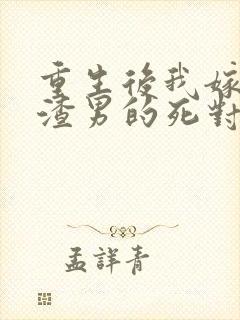 重生後我嫁
渣男的死對
孟詳青